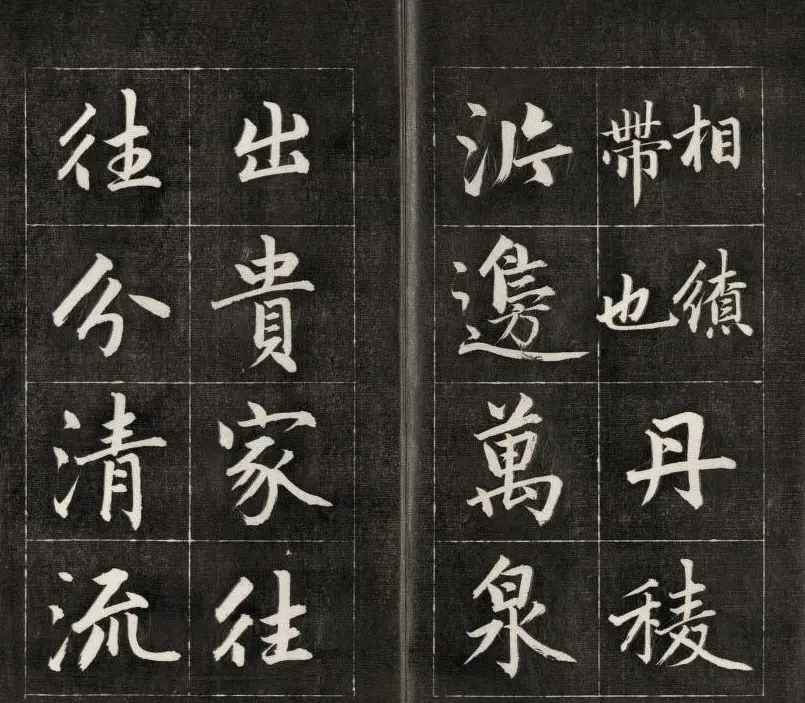 相
帶也
丹稜
沜邊萬泉
出貴家往
往分清流